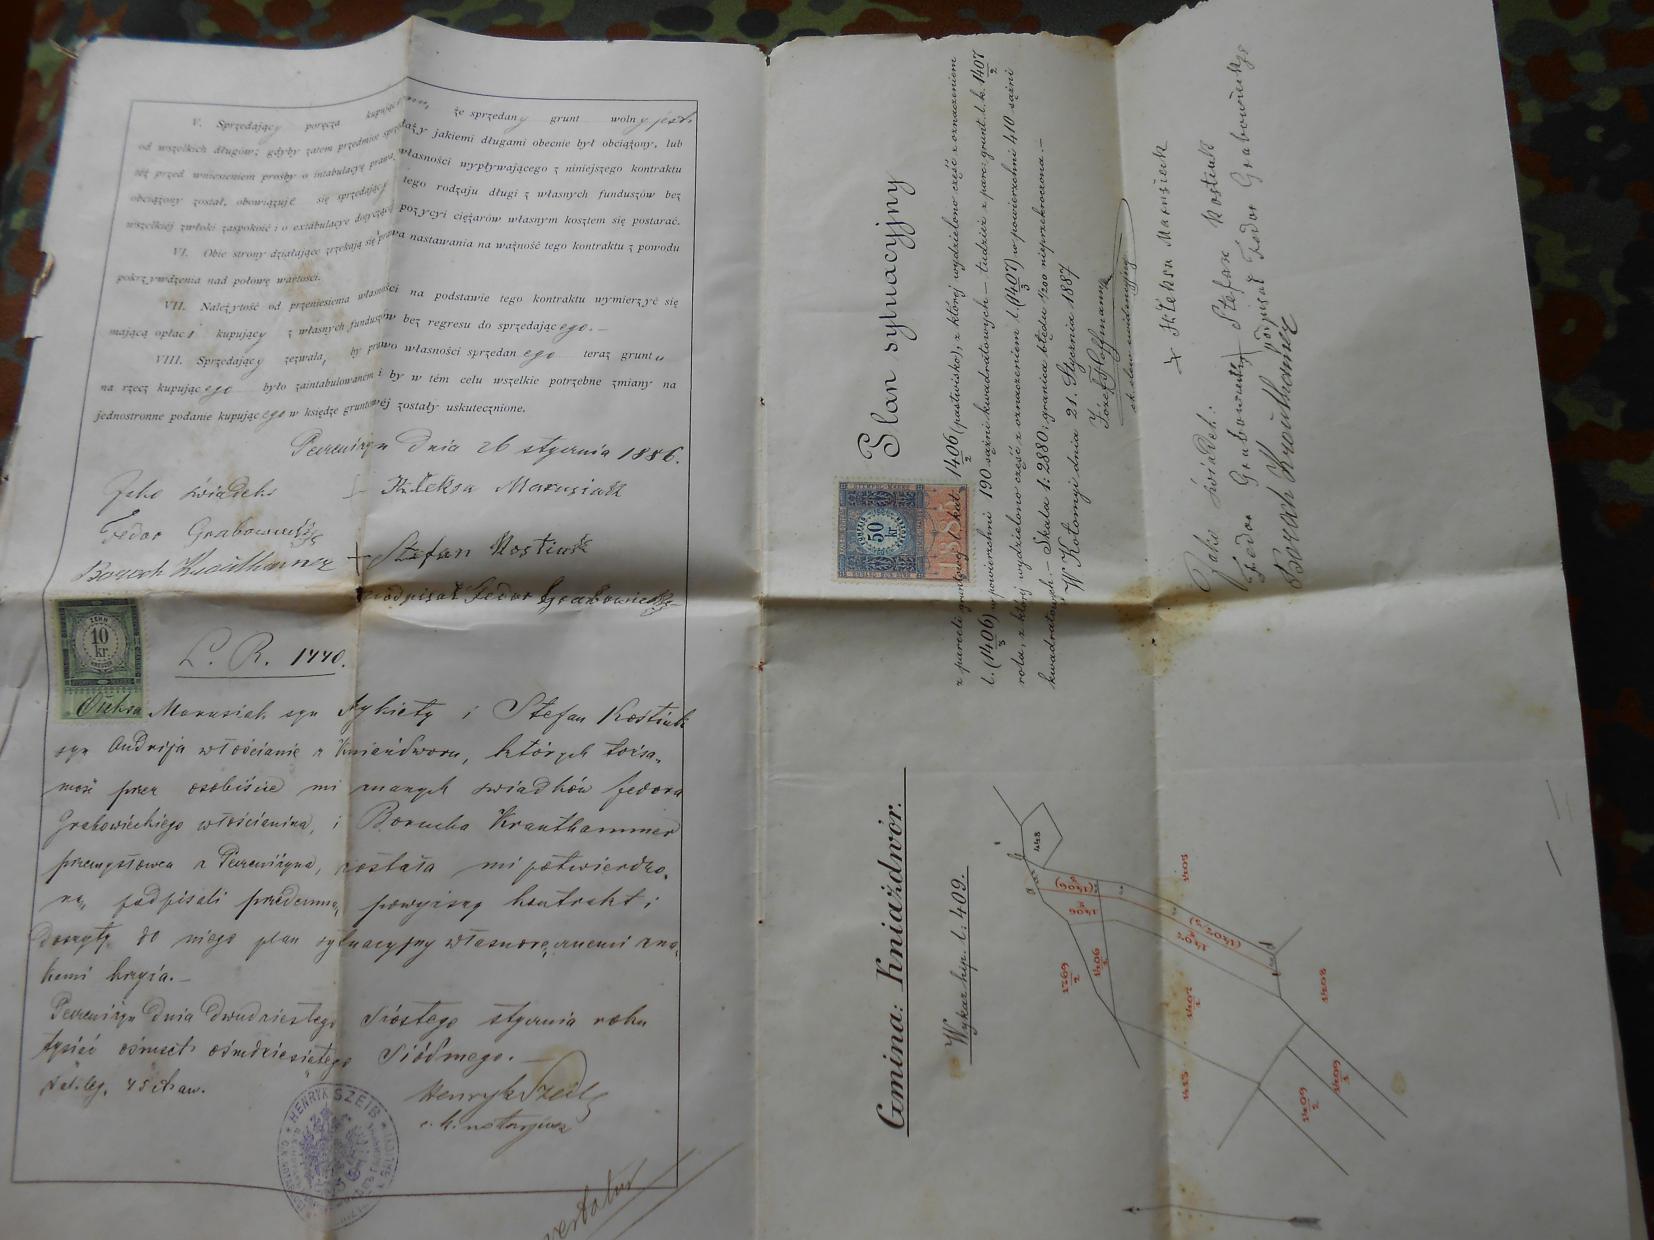 V. Sprzedający poręcza kupującemu, że sprzedany grunt wolny jest
od wszelkich długów; gdyby zatem przedmiot sprzedaży jakiemi długami obecnie był obciążony, lub
też przed wniesieniem prośby o intabulacyę prawa własności wypływającego z niniejszego kontraktu
obciążony został, obowiązuje się sprzedający tego rodzaju długi z własnych funduszów bez
wszelkiej zwłoki zaspokoić i o extabulacye dotyczącej pozycyi ciężarów własnym kosztem się postarać.
VI. Obie strony działające zrzekają się prawa nastawania na ważność tego kontraktu z powodu
pokrzywdzenia nad połowę wartości.
VII. Należytość od przeniesienia własności na podstawie tego kontraktu wymierzyć się
mającą opłaci kupujący z własnych funduszów bez regresu do sprzedającego.—
VIII. Sprzedający zezwala, by prawo własności sprzedanego teraz gruntu
na rzecz kupującego było zaintabulowanem i by w tém celu wszelkie potrzebne zmiany na
jednostronne podanie kupującego w księdze gruntowéj zostały uskutecznione.
Peczeniżyn dnia 26 stycznia 1886.
Jako świadek
Ołeksa Marusiak
Fedor Grabowiecki
Boruch Krauthammer
+ Stefan Kostiuk
podpisał Fedor Grabowiecki
10
kr.
L. R. 1440.
Ołeksa Marusiak syn Mykiety i Stefan Kostiuk
syn Andrija włościanie z Kniaźdworu, których tożsa-
mość przez osobiście mi znanych świadków Fedora
Grabowieckiego włościanina, i Borucha Krauthammer
przemysłowca z Peczeniżyna, została mi potwierdzo-
ną, podpisali przedemną powyższy kontrakt i
doszyty do niego plan sytuacyjny własnoręcznemi zna-
kami krzyża.—
Peczeniżyn dnia dwudziestego szóstego stycznia roku
tysiąc ośmset ośmdziesiątego siódmego.—
Henryk Szeib
c. k. notaryusz
HENRYK SZEIB
Plan sytuacyjny
50
kr.
1885
z parceli gruntowej l. kat. 1406/2 (pastwisko), z której wydzielono część z oznaczeniem
l. (1406/3) w powierzchni 190 sążni kwadratowych — tudzież z parc. grunt. l. k. 1407/2
rola, z której wydzielono część z oznaczeniem l. (1407/3) w powierzchni 410 sążni
kwadratowych.— Skala 1:2880; granica błędu 1/200 nieprzekroczona.—
W Kołomyi dnia 21. Stycznia 1887
Józef Hoffmann
+ Ołeksa Marusiak
Jako świadek:
Fedor Grabowiecki
Stefan Kostiuk
podpisał Fedor Grabowiecki
Boruch Krauthammer
Gmina: Kniaźdwór.
Wykaz hip. l: 409.
448
1406/2
(1406/3)
1406/1
1269/2
1405
1407/2
(1407/3)
1407/1
1408
1409/2
1409/3